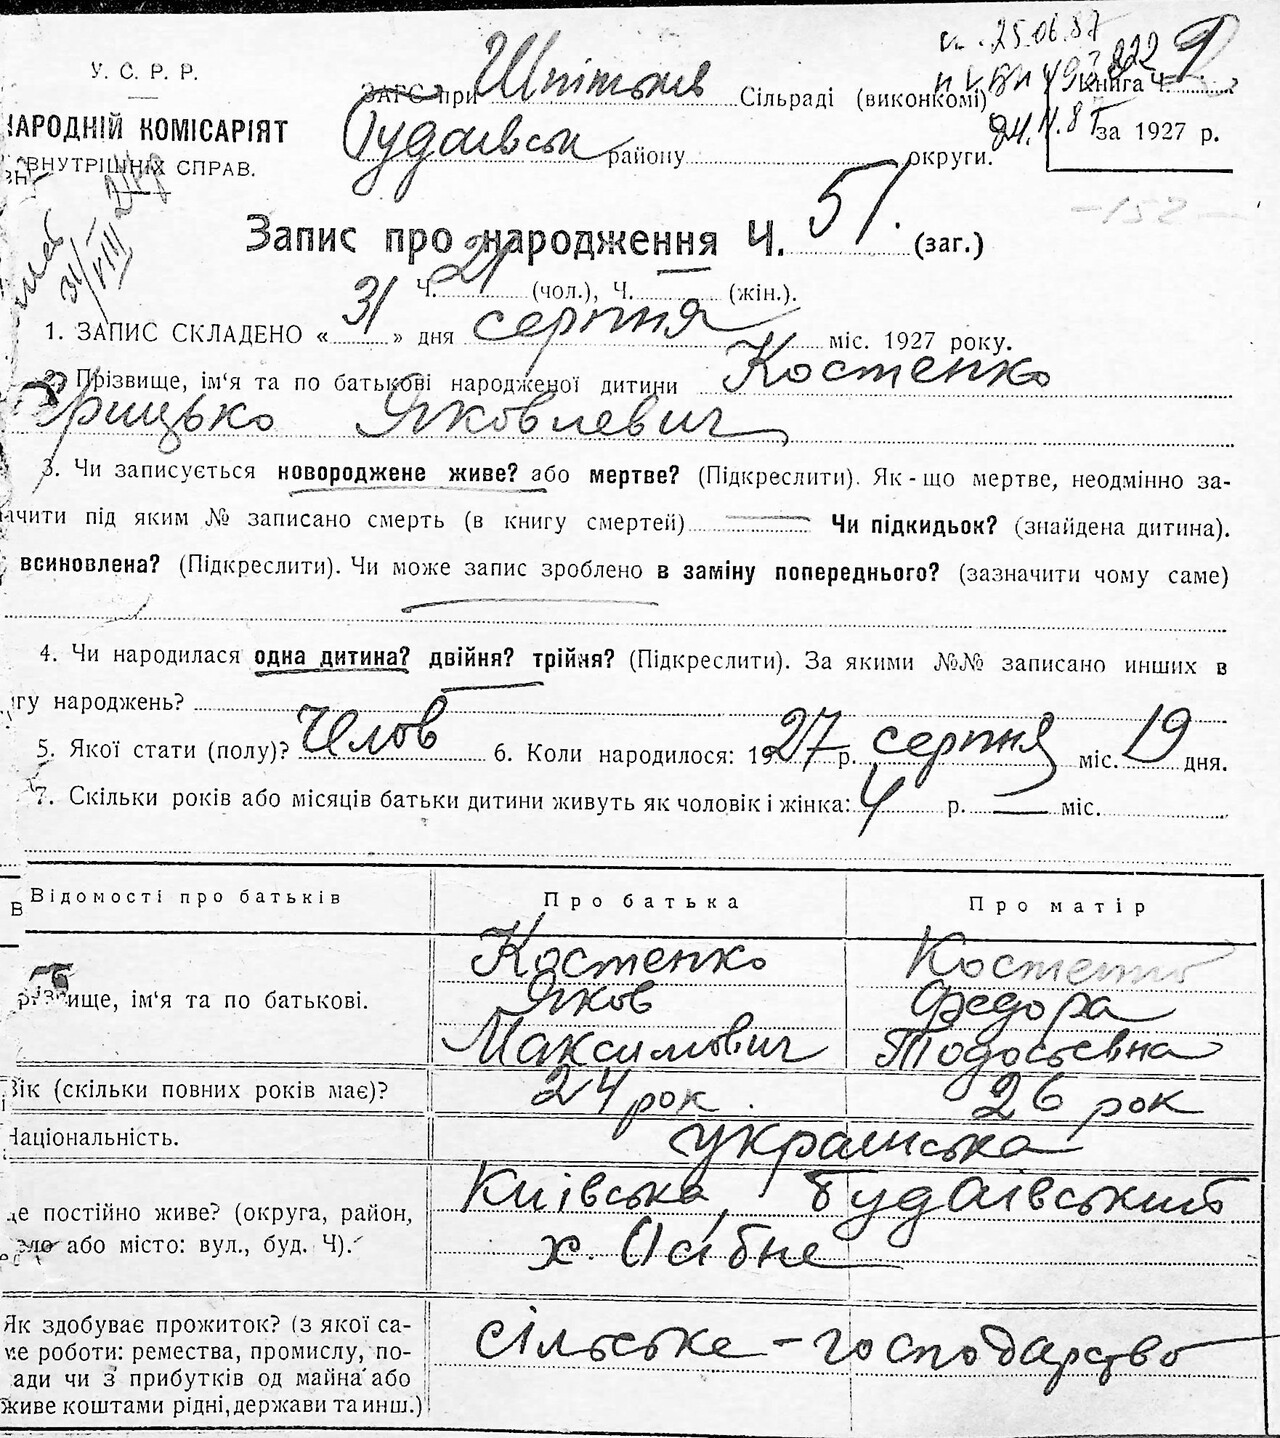 У. С. Р. Р.
НАРОДНІЙ КОМІСАРІЯТ
ВНУТРІШНІХ СПРАВ.
25.06.87
Книга Ч.
за 1927 р.
ЗАГС при Шпітьків Сільраді (виконкомі)
Будаєвськ району округи.
31/VIII
Запис про народження Ч. 51. (заг.)
Ч. 21 (чол.), Ч. (жін.).
1. ЗАПИС СКЛАДЕНО « 31 » дня серпня міс. 1927 року.
2. Прізвище, ім'я та по батькові народженої дитини Костенко
Грицько Яковлевич
3. Чи записується новороджене живе? або мертве? (Підкреслити). Як-що мертве, неодмінно за-
ачити під яким № записано смерть (в книгу смертей) Чи підкидьок? (знайдена дитина).
всиновлена? (Підкреслити). Чи може запис зроблено в заміну попереднього? (зазначити чому саме)
4. Чи народилася одна дитина? двійня? трійня? (Підкреслити). За якими №№ записано инших в
гу народжень?
5. Якої стати (полу)? Челов 6. Коли народилося: 1927 р. серпня міс. 19 дня.
7. Скільки років або місяців батьки дитини живуть як чоловік і жінка: 4 р. — міс.
Відомості про батьків Про батька Про матір
різвище, ім'я та по батькові.
Костенко Костенко
Яков Федора
Максимович Тодосьевна
Вік (скільки повних років має)? 24 рок 26 рок
Національність. украинська
де постійно живе? (округа, район,
село або місто: вул., буд. Ч).
Київська, Будаївський
х. Осібне
Як здобуває прожиток? (з якої са-
ме роботи: ремества, промислу, по-
ади чи з прибутків од майна або
живе коштами рідні, держави та инш.)
сільське - господарство